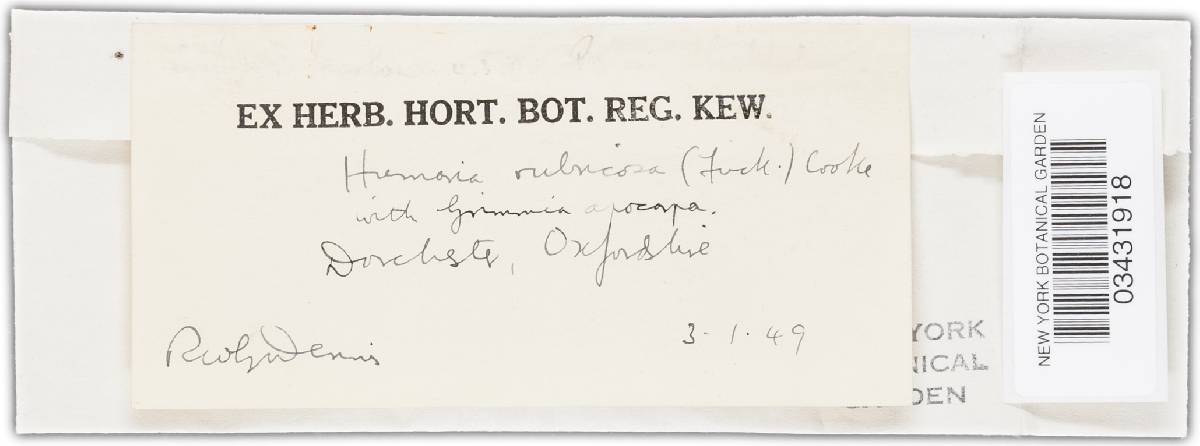 EX HERB. HORT. BOT. REG. KEW.
Humaria rubricosa (Fuck.) Cooke
with Grimmia apocarpa.
Dorchester, Oxfordshire
RWGDennis
3-1.49
YORK
ICAL
DEN
NEW YORK BOTANICAL GARDEN
03431918